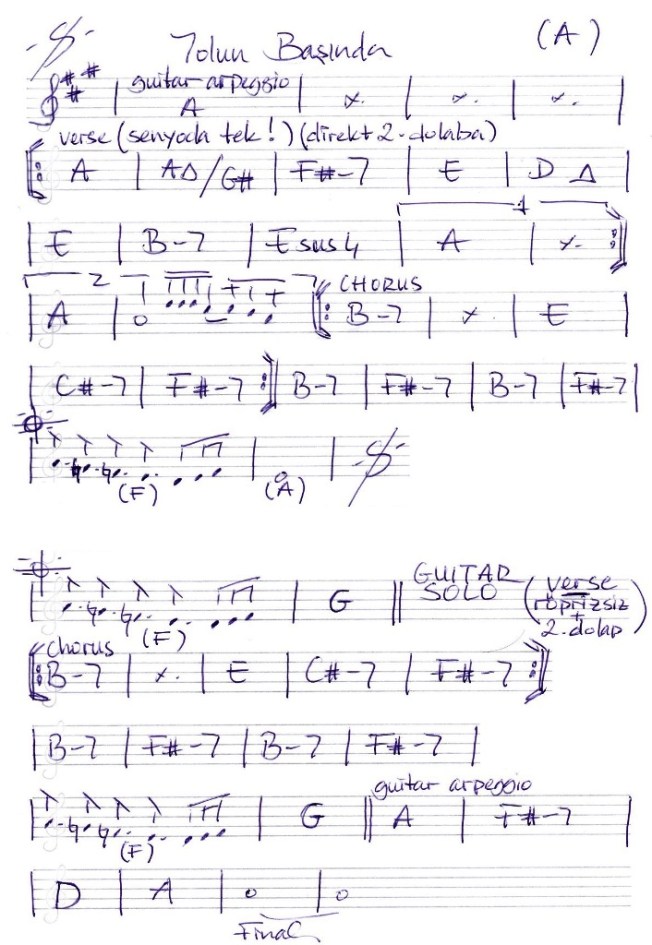 Yolun Başında (A)
guitar arpeggio
A | ٪ | ٪ | ٪ |
verse (senyoda tek!) (direkt 2. dolaba)
A | AΔ/G# | F#-7 | E | D Δ |
1
E | B-7 | Esus4 | A | ٪
2 CHORUS
A | B-7 | ٪ | E |
C#-7 | F#-7 | B-7 | F#-7 | B-7 | F#-7 |
(F) (A)
GUITAR SOLO (verse röprizsiz + 2. dolap)
(F) | G ||
chorus
B-7 | ٪ | E | C#-7 | F#-7
B-7 | F#-7 | B-7 | F#-7 |
guitar arpeggio
(F) | G || A | F#-7 |
D | A |
Final